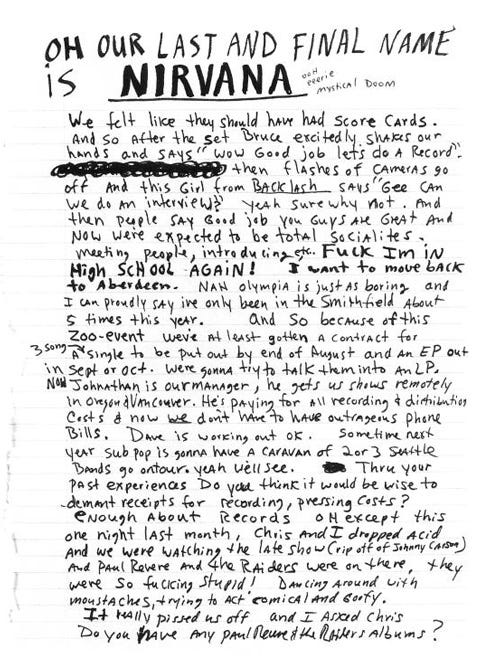 OH OUR LAST AND FINAL NAME
is NIRVANA ooH eeerie mystical Doom
We felt like they should have had score cards.
And so After the set Bruce excitedly shakes our
hands and says "wow Good job lets do A Record".
then flashes of cameras go
off And this Girl from BACKlash says "Gee can
we do an interview?" yeah sure why not. And
then people say Good job you guys are Great And
Now were expected to be total socialites.
meeting people, introducing etc. FUCK Im in
High SCHOOL AGAIN! I want to move BACK
to Aberdeen. NAH olympia is just as boring and
I can proudly say ive only been in the Smithfield About
5 times this year. And so because of this
Zoo-event weve At least gotten A contract for
A 3 song single to be put out by end of August and an EP out
in Sept or oct. Were gonna try to talk them into an LP.
Now Johnathan is our manager, he gets us shows remotely
in Oregon & Vancouver. He's paying for All recording & distribution
Costs & now we don't have to have outrageous phone
Bills. Dave is working out ok. Sometime next
year sub pop is gonna have a caravan of 2 or 3 Seattle
Bands go on tour. yeah we'll see. Thru your
past experiences Do you think it would be wise to
demand receipts for recording, pressing costs?
enough About Records OH except this
one night last month, Chris And I dropped acid
And we were watching the late show (rip off of Johnny Carson)
And Paul Revere and the Raiders were on there, they
were so fucking stupid! Dancing around with
moustaches, trying to act comical and Goofy.
It really pissed us off and I Asked Chris
Do you have Any Paul Revere & the Raiders Albums?